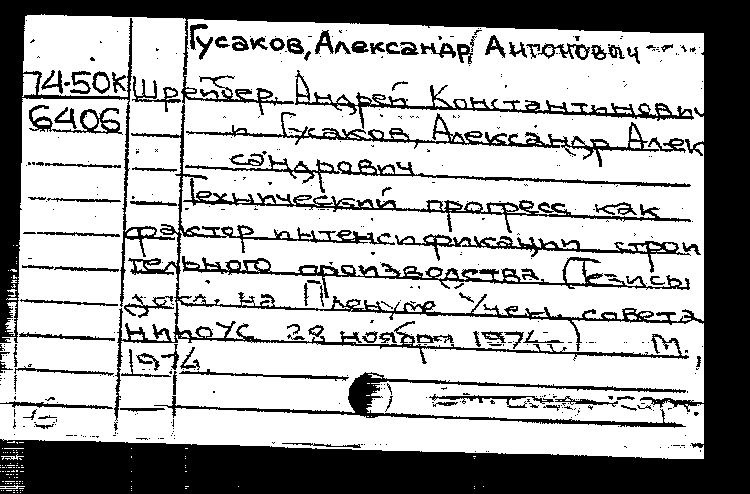 Гусаков, Александр Антонович
74-50К Шрейбер, Андрей Константинович
6406 и Гусаков, Александр Алек
сандрович.
Технический прогресс как
фактор интенсификации строи
тельного производства. (Тезисы
докл. на Пленуме Учен. совета
НИПОУС 28 ноября 1974г.) М.,
1974.